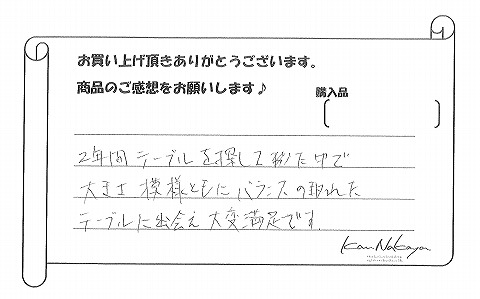 お買い上げ頂きありがとうございます。
商品のご感想をお願いします♪
購入品
2年間 テーブルを探して来た中で
大きさ 模様ともに バランスの取れた
テーブルに出会え 大変満足です
Kan Nakaya